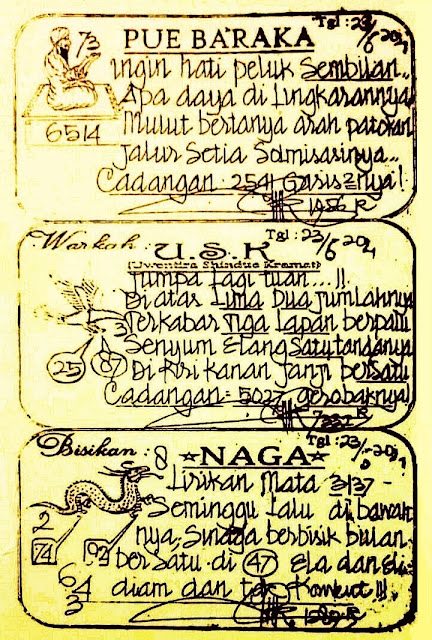 Tgl : 23/6 2021
PUE BARAKA
73
6514
Ingin hati peluk Sembilan..
Apa daya di Lingkarannya
Mulut bertanya arah patokan
Jalur Setia Solmisasinya..
Cadangan : 2541 Garis2nya!
1956 R
Warkah :
U.S.K
Tgl : 23/6 2021
(Uwentira Shindua Kramat)
Jumpa lagi tuan...!!
Di atas Lima Dua Jumlahnya
Terkabar Tiga Lapan berpadu
Senyum Elang Satu tandanya
Di Kiri kanan Janji bersatu
Cadangan = 5027 gerobaknya!
3
25 87
Bisikan :
8
NAGA
Tgl : 23/
Lirikan Mata 3137 -
Seminggu lalu di bawah
nya, Sindaga berbisik bulan
berSatu di 47 Ela dan di
diam dan tak
2
74 02
6 4
3